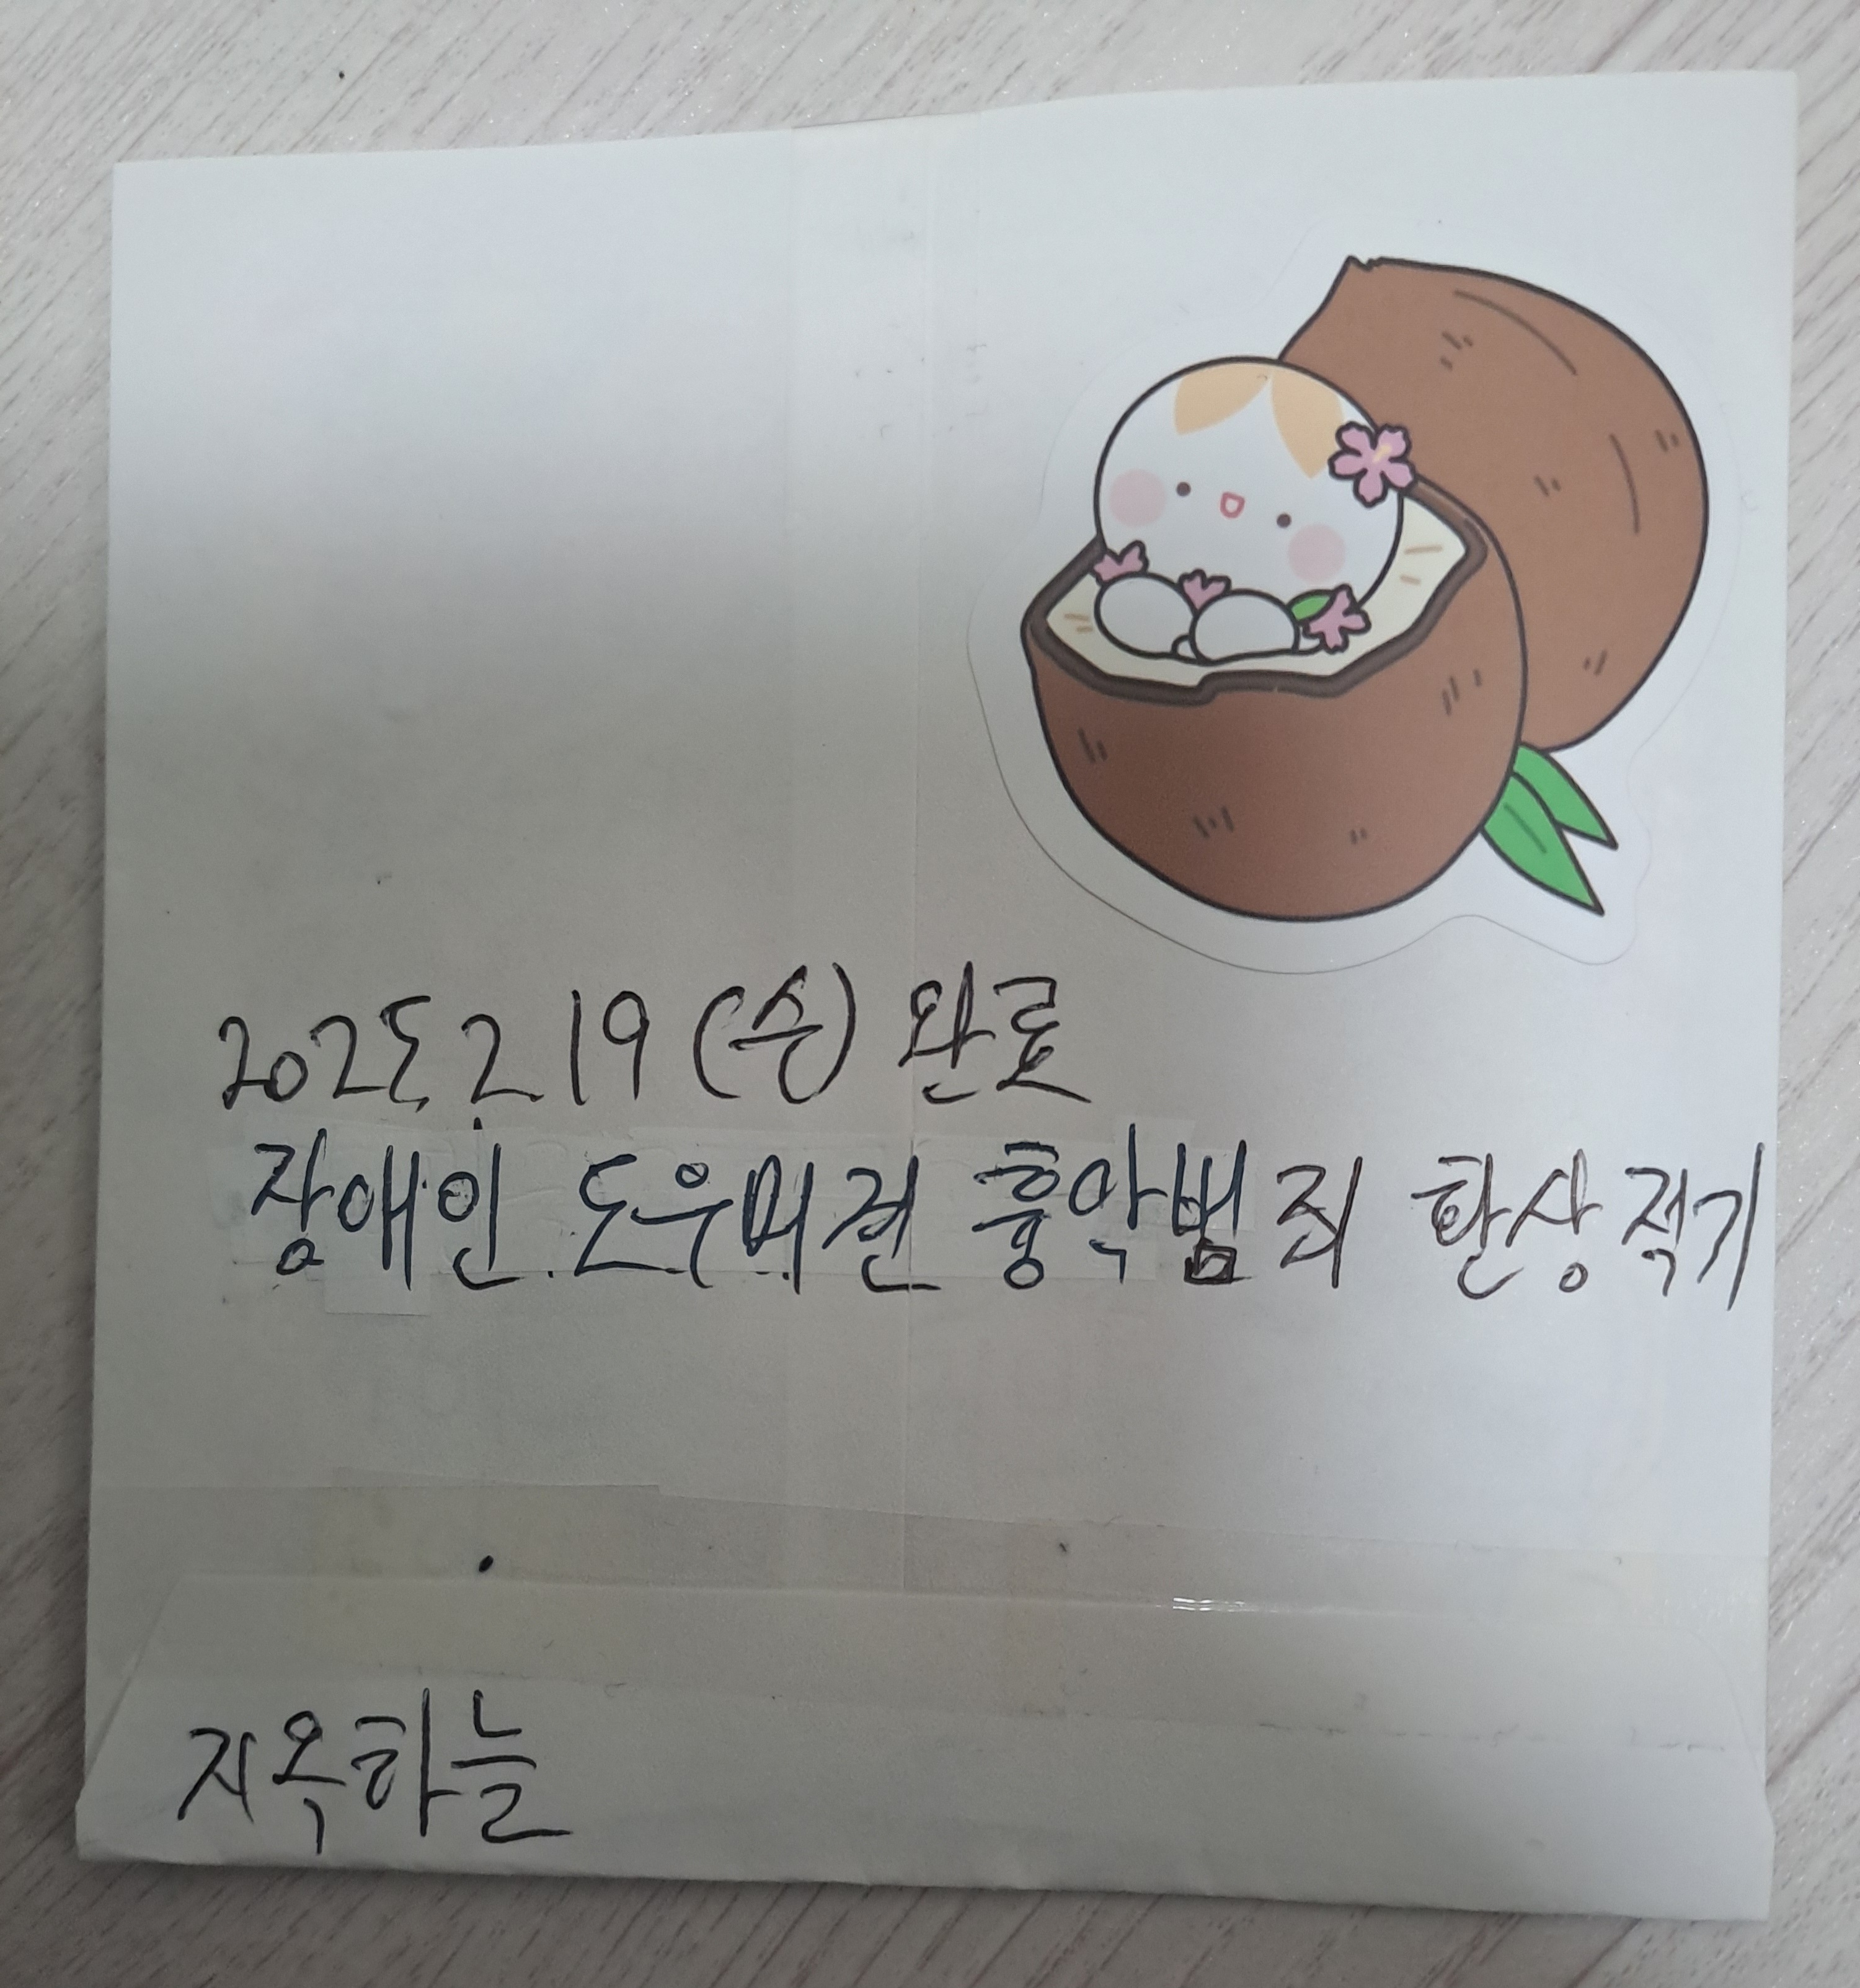 2025. 2. 19 (수) 완료
장애인 도우미견 흉악범죄 환상적기
지옥하늘